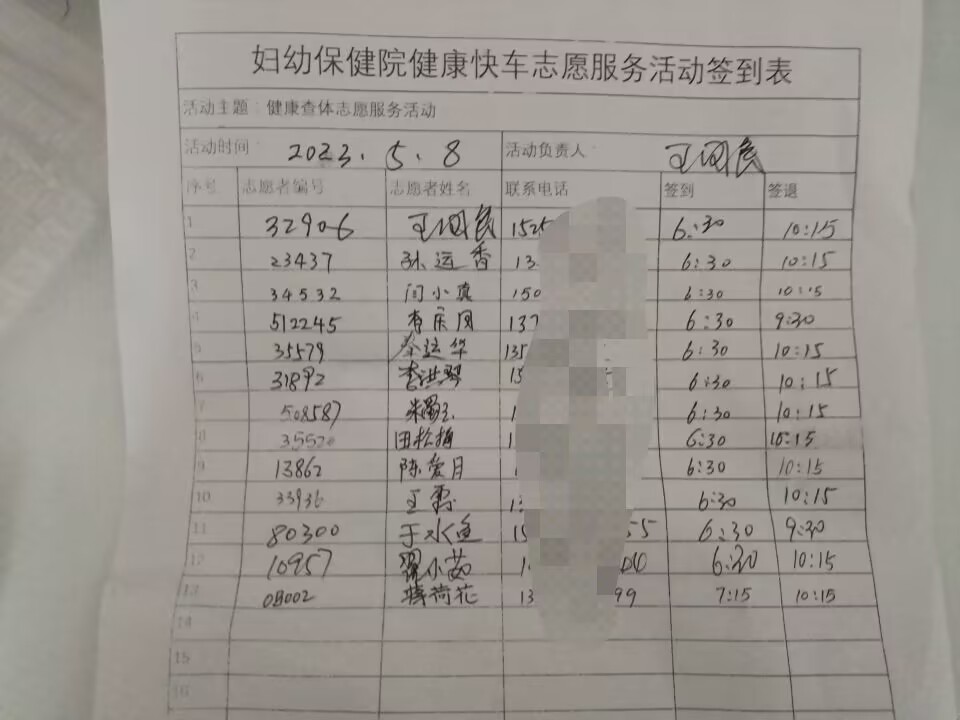 妇幼保健院健康快车志愿服务活动签到表
活动主题：健康查体志愿服务活动
活动时间： 2023.5.8 活动负责人： 王国民
序号 志愿者编号 志愿者姓名 联系电话 签到 签退
1 32906 王国民 1525 6:30 10:15
2 23437 孙运香 13 6:30 10:15
3 34532 闫小真 150 6:30 10:15
4 512245 137 6:30 9:30
5 35579 秦运华 135 6:30 10:15
6 31892 李洪琴 15 6:30 10:15
7 508587 1 6:30 10:15
8 35520 田松梅 1 6:30 10:15
9 13862 陈爱月 6:30 10:15
10 33936 王 13 6:30 10:15
11 80300 于水鱼 15 55 6:30 9:30
12 10957 翟小茹 1 6:30 10:15
13 08002 蒋荷花 13 99 7:15 10:15
14
15
16